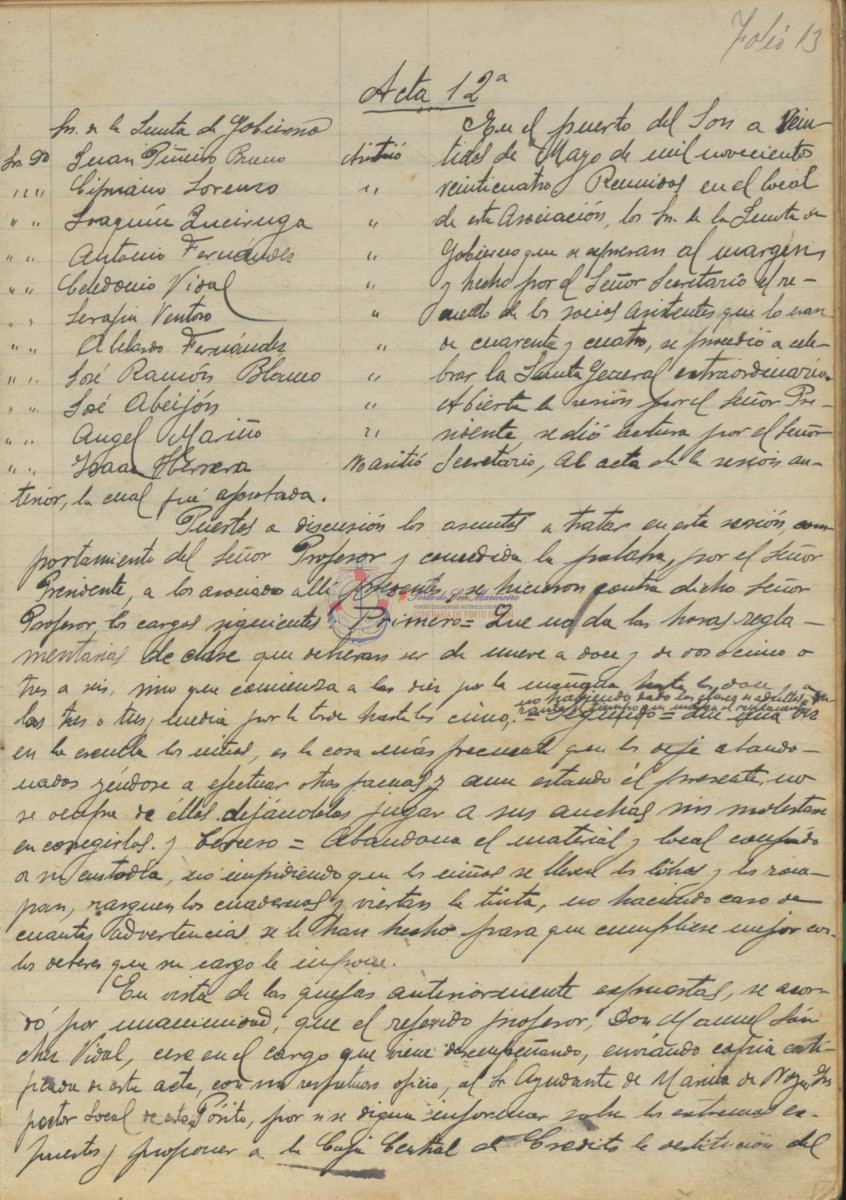 Folio 13
Acta 12ª
Srs. de la Junta de Gobierno
Sr. Dn Juan Piñeiro Bruno Asistió
" " Cipriano Lorenzo "
" " Joaquín Queiruga "
" " Antonio Fernández "
" " Celedonio Vidal "
" " Serafin Ventoso "
" " Abelardo Fernández "
" " José Ramón Blanco "
" " José Abeijón "
" " Angel Mariño "
" " Isaac Herrera No asistió
En el puerto del Son a vein-
tidos de Mayo de mil novecientos
veinticuatro Reunidos en el local
de esta Asociación, los Srs. de la Junta de
Gobierno que se expresan al margen,
y hecho por el Señor Secretario el re-
cuento de los socios asistentes que lo eran
de cuarenta y cuatro, se procedió a cele-
brar la Junta General extraordinaria.
Abierta la sesión por el Señor Pre-
sidente, se dió lectura por el Señor
Secretario, al acta de la sesión an-
terior, la cual fué aprobada.
Puestos a discusión los asuntos a tratar en esta sesión, com-
portamiento del Señor Profesor y concedida la palabra, por el Señor
Presidente, a los asociados alli presentes, se hicieron contra dicho Señor
Profesor los cargos siguientes Primero = Que no da las horas regla-
mentarias de clase que deberan ser de nueve a doce y de dos a cinco o
tres a seis, sino que comienza a las diez por la mañana hasta las doce y a
no habiendo dado las clases de adultos
las tres o tres y media por la tarde hasta las cinco, = Segundo = Que una vez
en la escuela los niños, es la cosa más frecuente que los deje abando-
nados yéndose a efectuar otras faenas y aun estando él presente, no
se ocupa de éllos dejándolos jugar a sus anchas sin molestarse
en corregirlos. y Tercero = Abandona el material y local confiado
a su custodia, no impidiendo que los niños se lleven los libros y los rom-
pan, rasguen los cuadernos y viertan la tinta, no haciendo caso de
cuantas advertencias se le han hecho para que cumpliese mejor con
los deberes que su cargo le impone.
En vista de las quejas anteriormente expuestas, se acor-
dó, por unanimidad, que el referido profesor, Don Manuel Sán
chez Vidal, cese en el cargo que viene desempeñando, enviando copia certi-
ficada de este acta, con un respetuoso oficio, al Sr. Ayudante de Marina de Noya, Ins
pector Local de este Pósito, por si se digna informar sobre los extremos ex-
puestos y proponer a la Caja Central de Crédito la destitución del
Porto do Son Mariñeiro